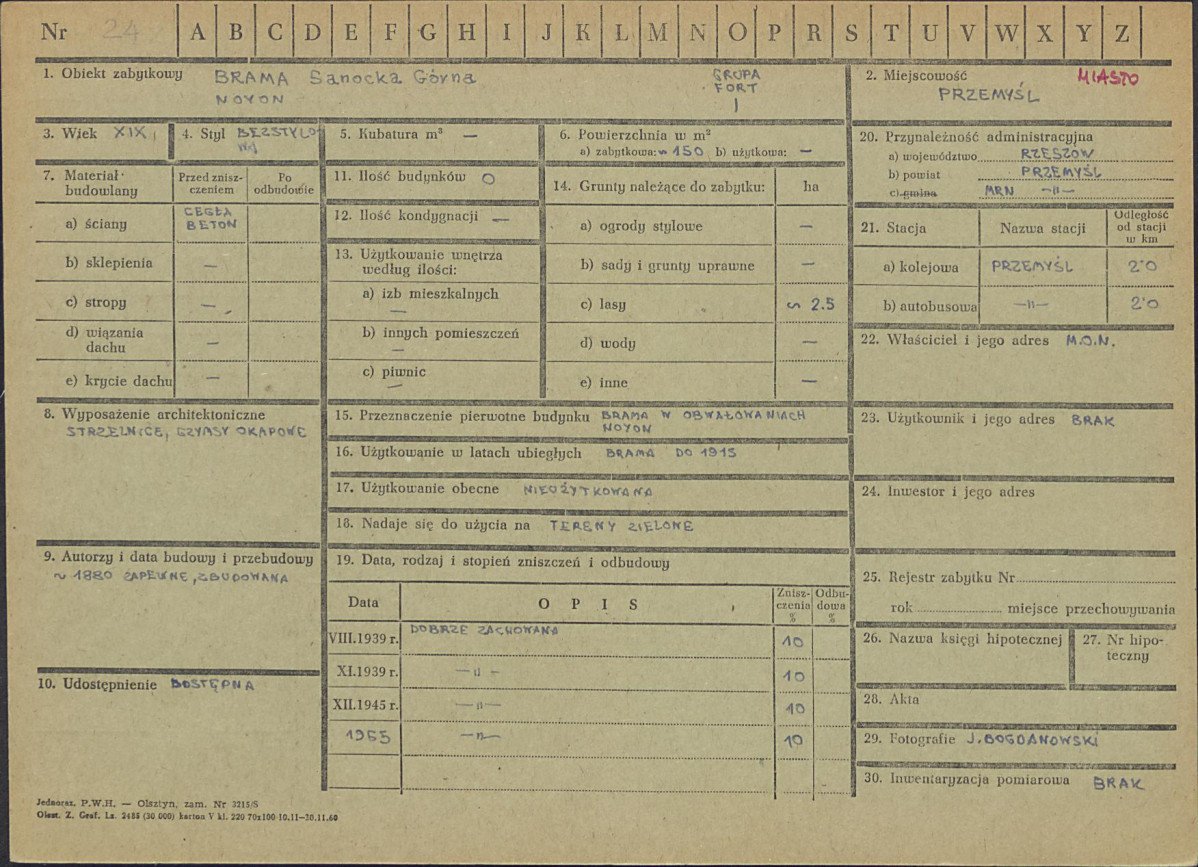 Nr 24 A B C D E F G H I J K L M N O P R S T U V W X Y Z
1. Obiekt zabytkowy BRAMA Sanocka Górna
NOYON
GRUPA
FORT
I
2. Miejscowość MIASTO
PRZEMYŚL
3. Wiek XIX
4. Styl BEZSTYLO
WY
5. Kubatura m³ —
6. Powierzchnia w m²
a) zabytkowa: ~ 150 b) użytkowa: —
7. Materiał budowlany
Przed zniszczeniem
Po odbudowie
a) ściany CEGŁA
BETON
b) sklepienia —
c) stropy —
d) wiązania dachu —
e) krycie dachu —
8. Wyposażenie architektoniczne
STRZELNICE, GZYMSY OKAPOWE
9. Autorzy i data budowy i przebudowy
~ 1880 ZAPEWNE, ZBUDOWANA
10. Udostępnienie DOSTĘPNA
11. Ilość budynków 0
12. Ilość kondygnacji —
13. Użytkowanie wnętrza
według ilości:
a) izb mieszkalnych
—
b) innych pomieszczeń
—
c) piwnic
—
14. Grunty należące do zabytku: ha
a) ogrody stylowe —
b) sady i grunty uprawne —
c) lasy ~ 2.5
d) wody —
e) inne —
15. Przeznaczenie pierwotne budynku BRAMA W OBWAŁOWANIACH
NOYON
16. Użytkowanie w latach ubiegłych BRAMA DO 1915
17. Użytkowanie obecne NIEUŻYTKOWANA
18. Nadaje się do użycia na TERENY ZIELONE
19. Data, rodzaj i stopień zniszczeń i odbudowy
Data OPIS Zniszczenia % Odbudowa %
VIII.1939 r. DOBRZE ZACHOWANA 10
XI.1939 r. —"— 10
XII.1945 r. —"— 10
1965 —"— 10
20. Przynależność administracyjna
a) województwo RZESZÓW
b) powiat PRZEMYŚL
c) gmina MRN —"—
21. Stacja Nazwa stacji Odległość od stacji w km
a) kolejowa PRZEMYŚL 2·0
b) autobusowa —"— 2·0
22. Właściciel i jego adres M.O.N.
23. Użytkownik i jego adres BRAK
24. Inwestor i jego adres
25. Rejestr zabytku Nr
rok miejsce przechowywania
26. Nazwa księgi hipotecznej
27. Nr hipoteczny
28. Akta
29. Fotografie J. BOGDANOWSKI
30. Inwentaryzacja pomiarowa BRAK
Jednoraz. P.W.H. — Olsztyn, zam. Nr 3215/S
Olszt. Z. Graf. Lz. 2485 (30 000) karton V kl. 220 70x100 10.11—30.11.60